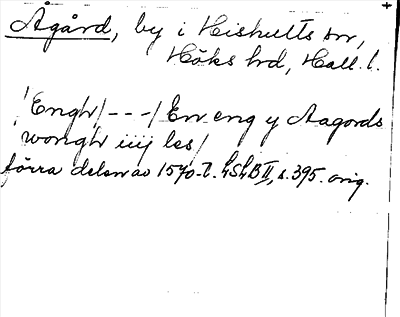 Ågård, by i Hishults sn,
Höks hd, Hall. l.
/Engh/ - - - / En eng y Aagords
wongh iiij les/
förra delen av 1570-t. LSLB II, s. 395. orig.